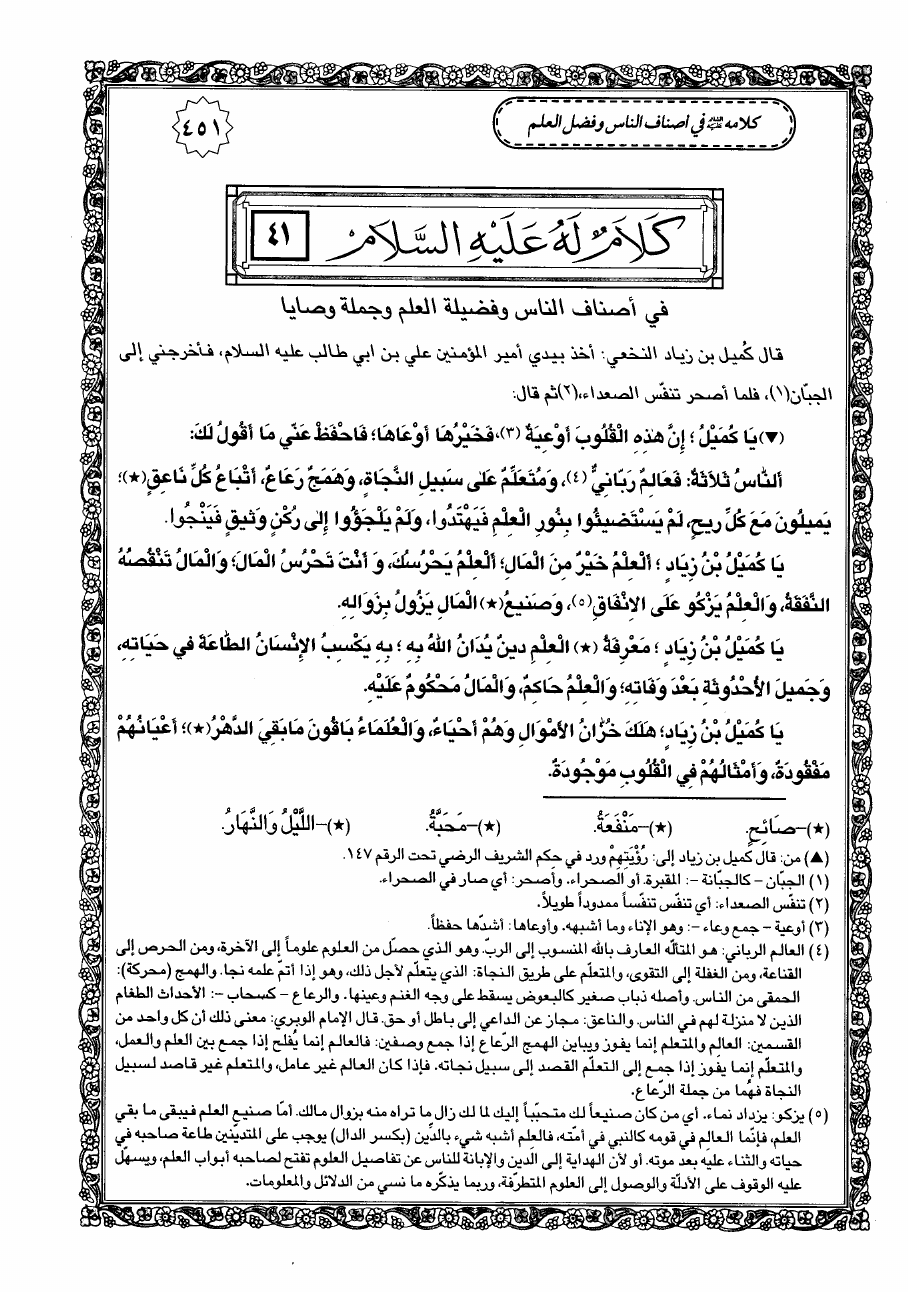 كلامه عليه السلام في أصناف الناس وفضل العلم
٤٥١
كَلَامٌ لَهُ عَلَيْهِ السَّلَامُ
٤١
في أصناف الناس وفضيلة العلم وجملة وصايا
قال كُميل بن زياد النخعي: أخذ بيدي أمير المؤمنين علي بن ابي طالب عليه السلام، فأخرجني إلى
الجبّان(١)، فلما أصحر تنفّس الصعداء،(٢)ثم قال:
(▼)يَا كُمَيْلُ؛ إِنَّ هٰذِهِ الْقُلُوبَ أَوْعِيَةٌ (٣)، فَخَيْرُهَا أَوْعَاهَا؛ فَاحْفَظْ عَنّي مَا أَقُولُ لَكَ:
أَلنَّاسُ ثَلَاثَةٌ: فَعَالِمٌ رَبّانِيٌّ (٤)، وَمُتَعَلِّمٌ عَلى سَبيلِ النَّجَاةِ، وَهَمَجٌ رَعَاعٌ، أَتْبَاعُ كُلِّ نَاعِقٍ(★)؛
يَميلُونَ مَعَ كُلِّ ريحٍ، لَمْ يَسْتَضيئُوا بِنُورِ الْعِلْمِ فَيَهْتَدُوا، وَلَمْ يَلْجَؤُوا إِلى رُكْنٍ وَثيقٍ فَيَنْجُوا.
يَا كُمَيْلُ بْنُ زِيَادٍ؛ أَلْعِلْمُ خَيْرٌ مِنَ الْمَالِ؛ أَلْعِلْمُ يَحْرُسُكَ، وَ أَنْتَ تَحْرُسُ الْمَالَ؛ وَالْمَالُ تَنْقُصُهُ
النَّفَقَةُ، وَالْعِلْمُ يَزْكُو عَلَى الإِنْفَاقِ(٥)، وَصَنيعُ(★) الْمَالِ يَزُولُ بِزَوَالِهِ.
يَا كُمَيْلُ بْنُ زِيَادٍ؛ مَعْرِفَةُ (★) الْعِلْمِ دينٌ يُدَانُ اللهُ بِهِ؛ بِهِ يَكْسِبُ الإِنْسَانُ الطَّاعَةَ في حَيَاتِهِ،
وَجَميلَ الأُحْدُوثَةِ بَعْدَ وَفَاتِهِ؛ وَالْعِلْمُ حَاكِمٌ، وَالْمَالُ مَحْكُومٌ عَلَيْهِ.
يَا كُمَيْلُ بْنُ زِيَادٍ؛ هَلَكَ خُزَّانُ الأَمْوَالِ وَهُمْ أَحْيَاءٌ، وَالْعُلَمَاءُ بَاقُونَ مَابَقِيَ الدَّهْرُ(★)؛ أَعْيَانُهُمْ
مَفْقُودَةٌ، وَأَمْثَالُهُمْ فِي الْقُلُوبِ مَوْجُودَةٌ.
(★)–صَائِحٍ. (★)–مَنْفَعَةُ. (★)–مَحَبَّةُ. (★)–اللَّيْلُ وَالنَّهَارُ.
(▲) من: قال كميل بن زياد إلى: رُؤْيَتِهِمْ ورد في حكم الشريف الرضي تحت الرقم ١٤٧.
(١) الجبّان – كالجبّانة –: المقبرة. أو الصحراء. وأصحر: أي صار في الصحراء.
(٢) تنفّس الصعداء: أي تنفّس تنفّساً ممدوداً طويلاً.
(٣) أوعية – جمع وعاء –: وهو الإناء وما أشبهه. وأوعاها: أشدّها حفظاً.
(٤) العالم الرباني: هو المتألّه العارف بالله المنسوب إلى الربّ. وهو الذي حصّل من العلوم علوماً إلى الآخرة، ومن الحرص إلى
القناعة، ومن الغفلة إلى التقوى، والمتعلّم على طريق النجاة: الذي يتعلّم لأجل ذلك، وهو إذا أتمّ علمه نجا. والهمج (محركة):
الحمقى من الناس. وأصله ذباب صغير كالبعوض يسقط على وجه الغنم وعينها. والرعاع – كسحاب –: الأحداث الطغام
الذين لا منزلة لهم في الناس. والناعق: مجاز عن الداعي إلى باطل أو حق. قال الإمام الوبري: معنى ذلك أن كل واحد من
القسمين: العالم والمتعلم إنما يفوز ويباين الهمج الرّعاع إذا جمع وصفين: فالعالم إنما يُفلح إذا جمع بين العلم والعمل،
والمتعلّم إنما يفوز إذا جمع إلى التعلّم القصد إلى سبيل نجاته. فإذا كان العالم غير عامل، والمتعلم غير قاصد لسبيل
النجاة فهُما من جملة الرّعاع.
(٥) يزكو: يزداد نماء. أي من كان صنيعاً لك متحبّباً إليك لما لك زال ما تراه منه بزوال مالك. أمّا صنيع العلم فيبقى ما بقي
العلم، فإنّما العالم في قومه كالنبي في أمّته، فالعلم أشبه شيء بالدِّين (بكسر الدال) يوجب على المتديّنين طاعة صاحبه في
حياته والثناء عليه بعد موته. أو لأن الهداية إلى الدين والإبانة للناس عن تفاصيل العلوم تفتح لصاحبه أبواب العلم، ويسهّل
عليه الوقوف على الأدلّة والوصول إلى العلوم المتطرّفة، وربما يذكّره ما نسي من الدلائل والمعلومات.